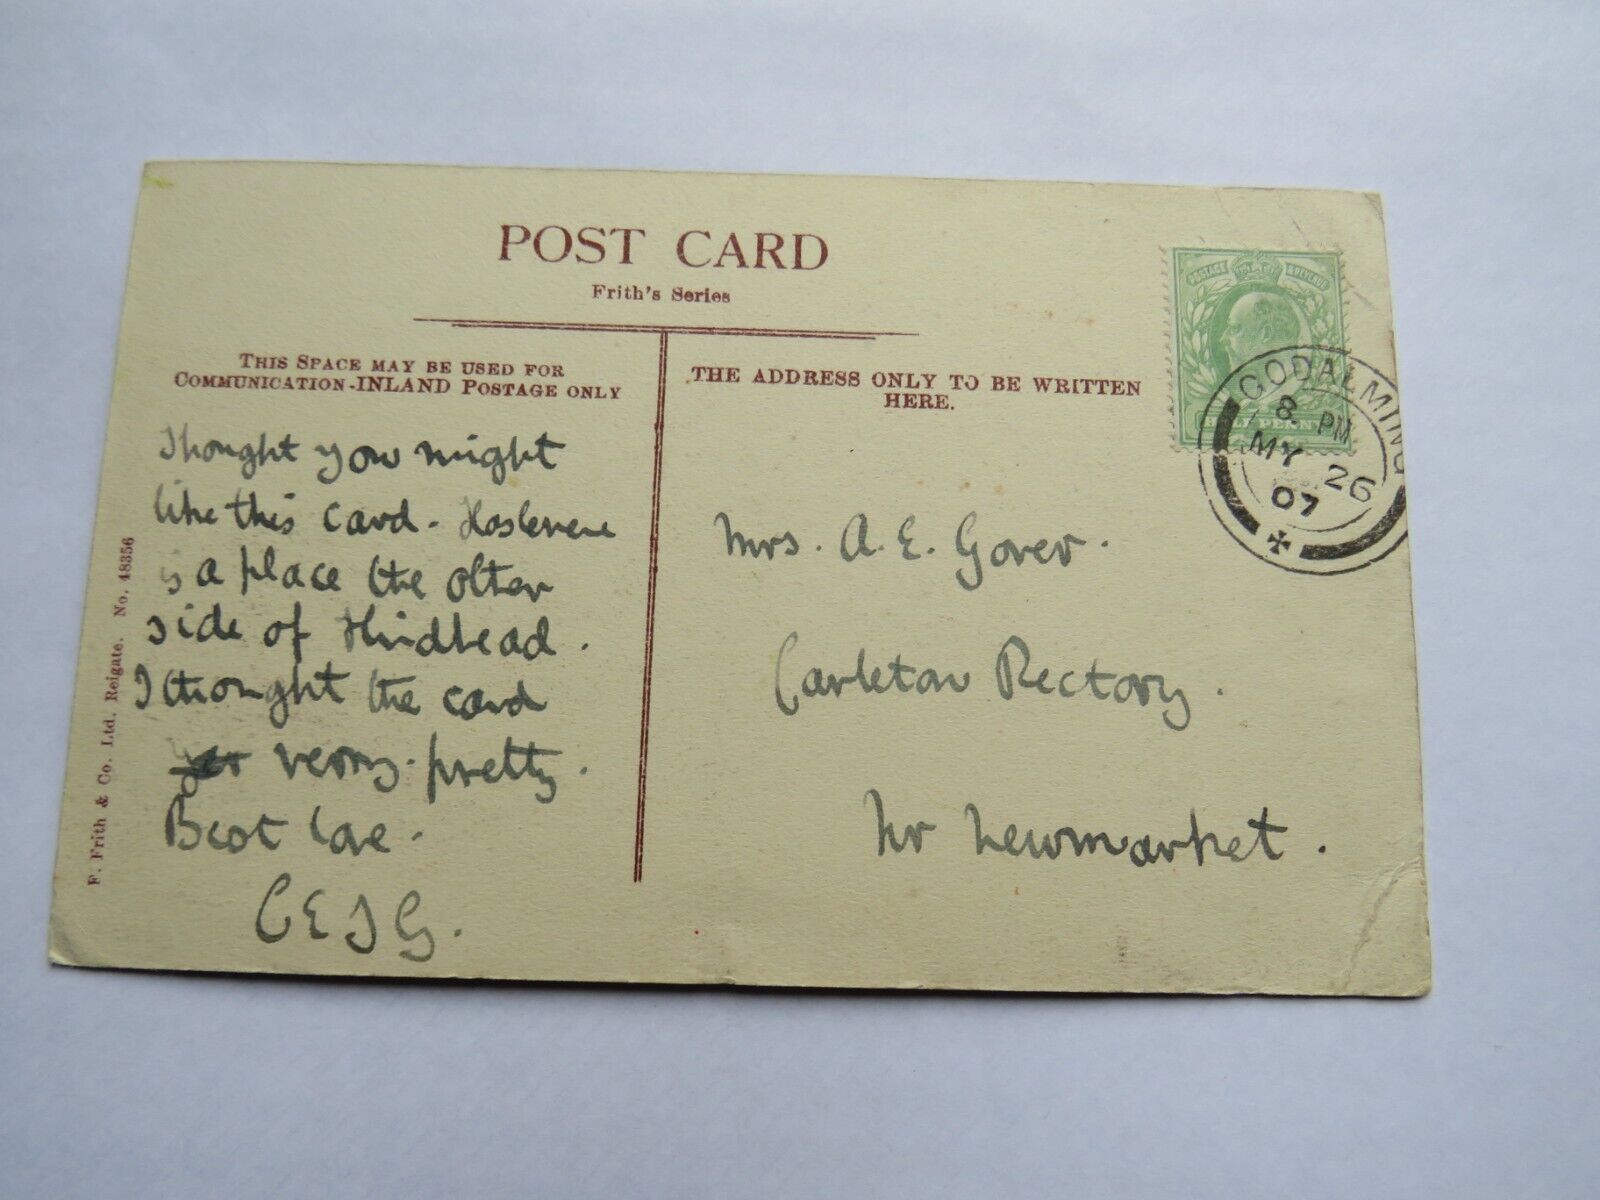 POST CARD
Frith's Series
THIS SPACE MAY BE USED FOR
COMMUNICATION-INLAND POSTAGE ONLY
THE ADDRESS ONLY TO BE WRITTEN
HERE.
POSTAGE & REVENUE
HALF PENNY
GODALMING
8. PM
MY 26
07
Thought you might
like this card. Haslemere
is a place the other
side of Hindhead.
I thought the card
very pretty.
Best love.
CEJG.
Mrs. A. E. Gover.
Carleton Rectory.
Nr Newmarket.
F. Frith & Co. Ltd. Reigate. No. 48356